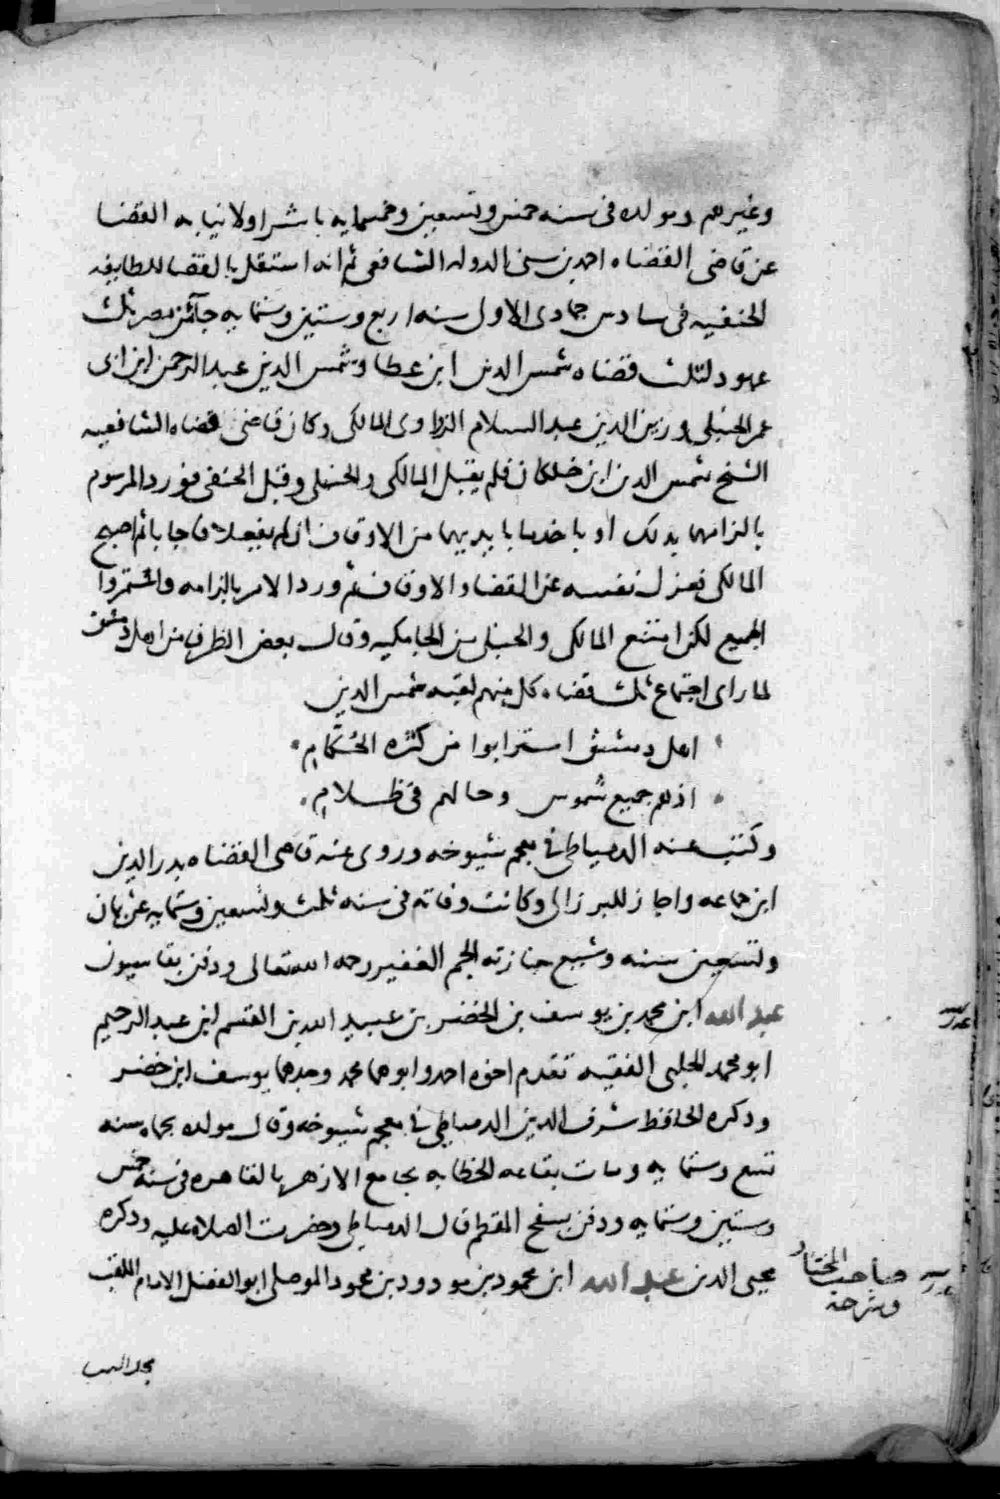 وغيرهم ومولده فى سنه خمس وتسعين وخمسمايه باشر اولا نيابه القضا
عن قاضى القضاه احمد بن سنى الدوله الشافعى ثم انه استقل بالقضا للطايفه
الحنفيه فى سادس جمادى الاول سنه اربع وستين وستمايه جآ من مصر ثلث
عهود لثلث قضاه شمس الدين ابن عطا وشمس الدين عبد الرحمن ابن ابى
عمر الحنبلى وزين الدين عبد السلام الزواوى المالكى وكان قاضى قضاه الشافعيه
الشيخ شمس الدين ابن خلكان فلم يقبل المالكى والحنبلى وقبل الحنفى فورد المرسوم
بالزامهما بذلك او باخذ ما بايديهما من الاوقاف ان لم يفعلا فاجابا ثم اصبح
المالكى فعزل نفسه عن القضا والاوقاف ثم ورد الامر بالزامه واستمروا
الجميع لكن امتنع المالكى والحنبلى من الجامكيه وقال بعض الظرفا من اهل دمشق
لما راى اجتماع ثلث قضاه كل منهم لقبه شمس الدين
اهل دمشق استرابوا من كثره الحُكّام
اذ هم جميع شموس وحالهم فى ظلام
وكتب عنه الدمياطى فى معجم شيوخه وروى عنه قاضى القضاه بدر الدين
ابن جماعه واجاز للبرزالى وكانت وفاته فى سنه ثلث وتسعين وستمايه عن ثمان
وتسعين سنه وشيع جنازته الجم الغفير رحمه الله تعالى ودفن بقاسيون
عبد الله ابن محمد بن يوسف بن الخضر بن عبيد الله بن القسم ابن عبد الرحيم
ابو محمد الحلبى الفقيه تقدم اخوه احمد وابوهما محمد وجدهما يوسف ابن خضر
وذكره الحافظ شرف الدين الدمياطى فى معجم شيوخه وقال مولده بحماه سنه
تسع وستمايه ومات بقاعه الخطابه بجامع الازهر بالقاهره فى سنه خمس
وستين وستمايه ودفن بسفح المقطم قال الدمياطى وحضرت الصلاه عليه وذكره
محيى الدين عبد الله ابن محمود بن مودود بن محمود الموصلى ابو الفضل الامام الملقب
صاحب المختار
وشرحه
مجد الدين